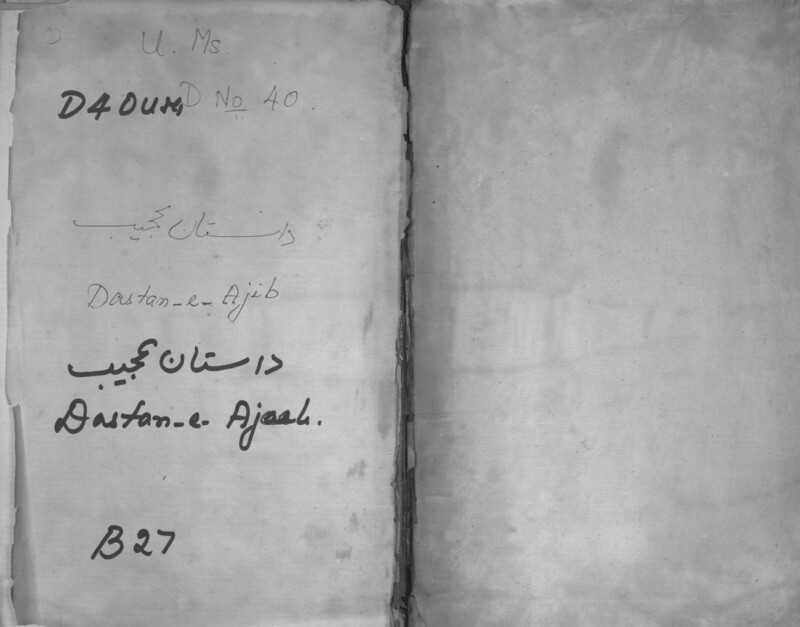 U. Ms.
D40UM D No 40.
داستان عجیب
Dastan-e-Ajib
داستان عجیب
Dastan-e-Ajeeb.
B27